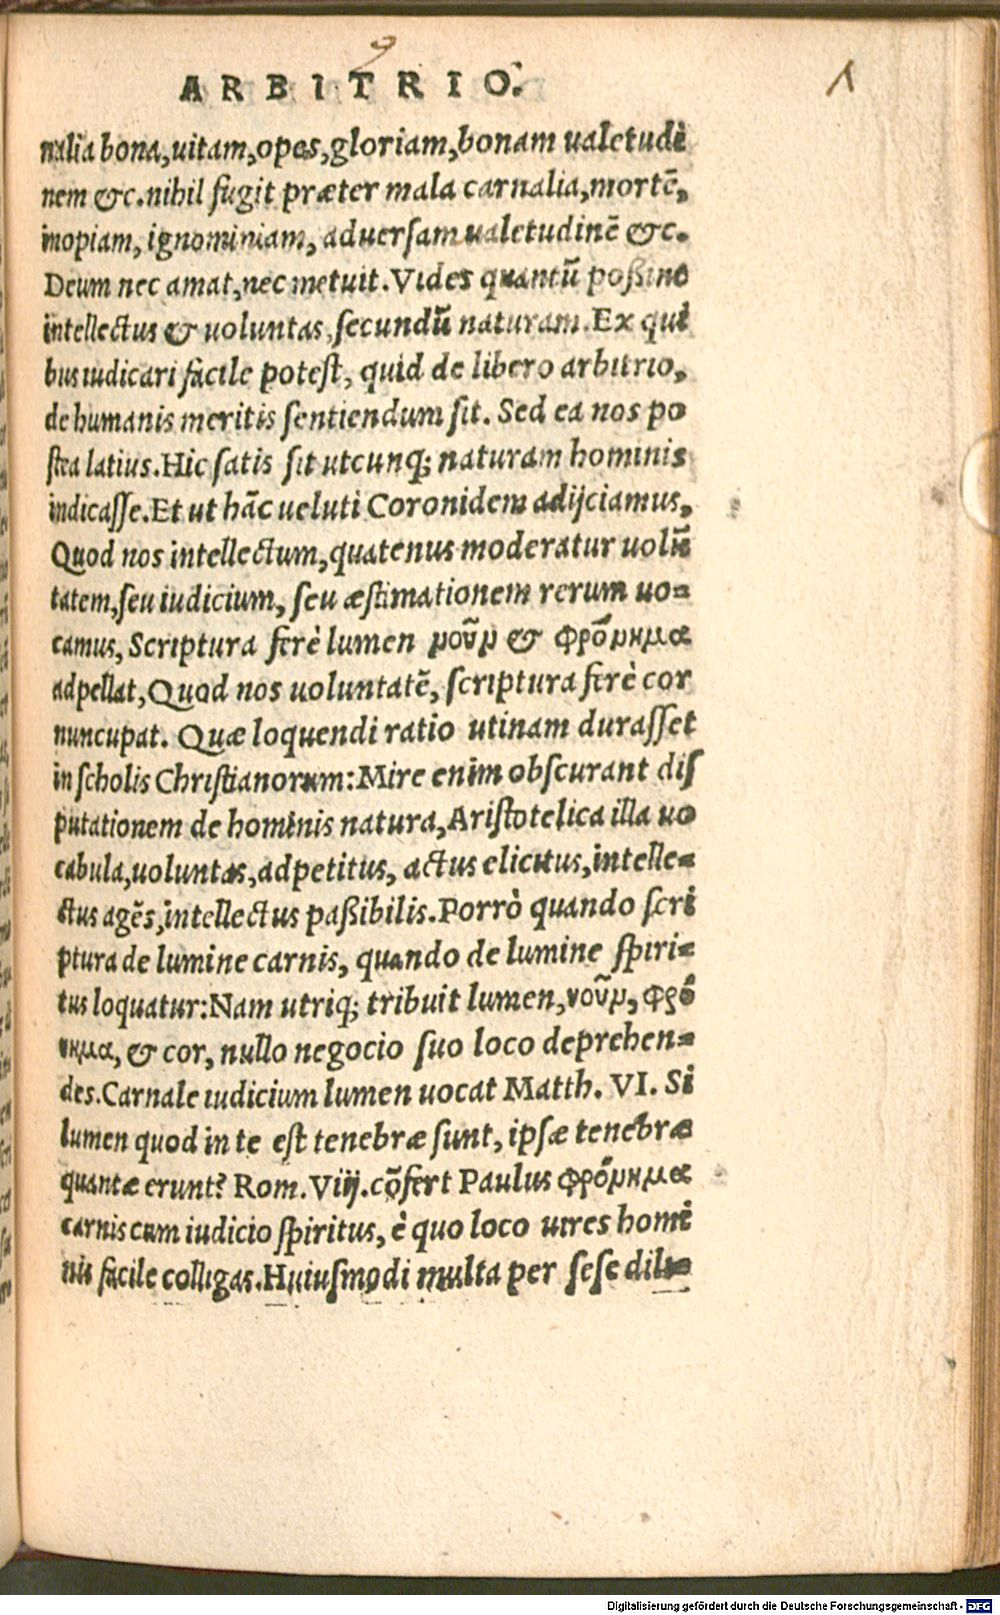 9
ARBITRIO.
nalia bona,uitam,opes,gloriam,bonam ualetudi
nem &c.nihil fugit præter mala carnalia,mortē,
inopiam, ignominiam, aduerſam ualetudinē &c.
Deum nec amat,nec metuit.Vides quantū poßint
intellectus & uoluntas,ſecundū naturam.Ex qui
bus iudicari facile poteſt, quid de libero arbitrio,
de humanis meritis ſentiendum ſit. Sed ea nos po
ſtea latius.Hic ſatis ſit utcunq; naturam hominis
indicaſſe.Et ut hāc ueluti Coronidem adijciamus,
Quod nos intellectum,quatenus moderatur uolū
tatem,ſeu iudicium, ſeu æſtimationem rerum uo-
camus, Scriptura ferè lumen νοῦν & φρόνημα
adpellat,Quod nos uoluntatē, ſcriptura ferè cor
nuncupat. Quæ loquendi ratio utinam duraſſet
in ſcholis Chriſtianorum:Mire enim obſcurant diſ
putationem de hominis natura,Ariſtotelica illa uo
cabula,uoluntas,adpetitus, actus elicitus,intelle-
ctus agēs,intellectus paßibilis.Porrò quando ſcri
ptura de lumine carnis, quando de lumine ſpiri-
tus loquatur:Nam utriq; tribuit lumen,νοῦν, φρό
νημα, & cor, nullo negocio ſuo loco deprehen-
des.Carnale iudicium lumen uocat Matth. VI. Si
lumen quod in te eſt tenebræ ſunt, ipſæ tenebræ
quantæ erunt? Rom. Viij.cōfert Paulus φρόνημα
carnis cum iudicio ſpiritus, è quo loco uires homi
nis facile colligas.Huiuſmodi multa per ſeſe dili-
Digitalisierung gefördert durch die Deutsche Forschungsgemeinschaft - DFG